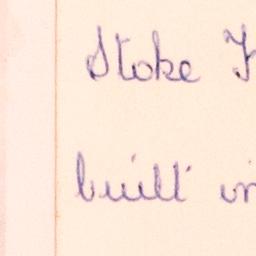 Stoke
built in